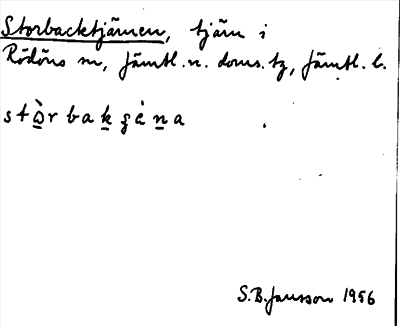 Storbacktjärnen, tjärn i
Rödöns sn, Jämtl. n. doms. tg, Jämtl. l.
stòrbakʒèna
S.B. Jansson 1956